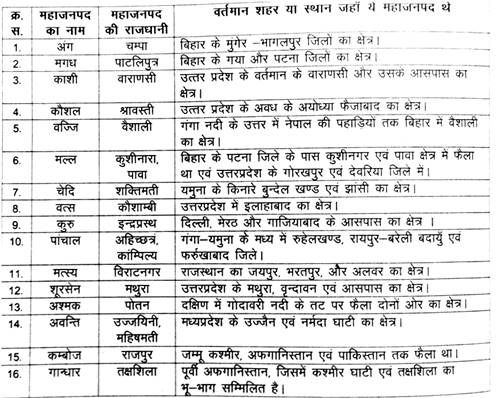 क्र. महाजनपद महाजनपद वर्तमान शहर या स्थान जहाँ ये महाजनपद थे
स. का नाम की राजधानी
1. अंग चम्पा बिहार के मुंगेर –भागलपुर जिलों का क्षेत्र।
2. मगध पाटलिपुत्र बिहार के गया और पटना जिलों का क्षेत्र।
3. काशी वाराणसी उत्तर प्रदेश के वर्तमान के वाराणसी और उसके आसपास का
क्षेत्र।
4. कौशल श्रावस्ती उत्तर प्रदेश के अवध के अयोध्या फैजाबाद का क्षेत्र।
5. वज्जि वैशाली गंगा नदी के उत्तर में नेपाल की पहाड़ियों तक बिहार में वैशाली
का क्षेत्र।
6. मल्ल कुशीनारा, बिहार के पटना जिले के पास कुशीनगर एवं पावा क्षेत्र में फैला
पावा था एवं उत्तरप्रदेश के गोरखपुर एवं देवरिया जिले में।
7. चेदि शक्तिमती यमुना के किनारे बुन्देल खण्ड एवं झांसी का क्षेत्र।
8. वत्स कौशाम्बी उत्तरप्रदेश में इलाहाबाद का क्षेत्र।
9. कुरु इन्द्रप्रस्थ दिल्ली, मेरठ और गाजियाबाद के आसपास का क्षेत्र ।
10. पांचाल अहिच्छत्रं, गंगा–यमुना के मध्य में रुहेलखण्ड, रायपुर–बरेली बदायुँ एवं
कांम्पिल्य फर्रुखाबाद जिले।
11. मत्स्य विराटनगर राजस्थान का जयपुर, भरतपुर, और अलवर का क्षेत्र।
12. शूरसेन मथुरा उत्तरप्रदेश के मथुरा, वृन्दावन एवं आसपास का क्षेत्र।
13. अश्मक पोतन दक्षिण में गोदावरी नदी के तट पर फैला दोनों ओर का क्षेत्र।
14. अवन्ति उज्जयिनी, मध्यप्रदेश के उज्जैन एवं नर्मदा घाटी का क्षेत्र।
महिषमती
15. कम्बोज राजपुर जम्मू कश्मीर, अफगानिस्तान एवं पाकिस्तान तक फैला था।
16. गान्धार तक्षशिला पूर्वी अफगानिस्तान, जिसमें कश्मीर घाटी एवं तक्षशिला का
भू–भाग सम्मिलित है।